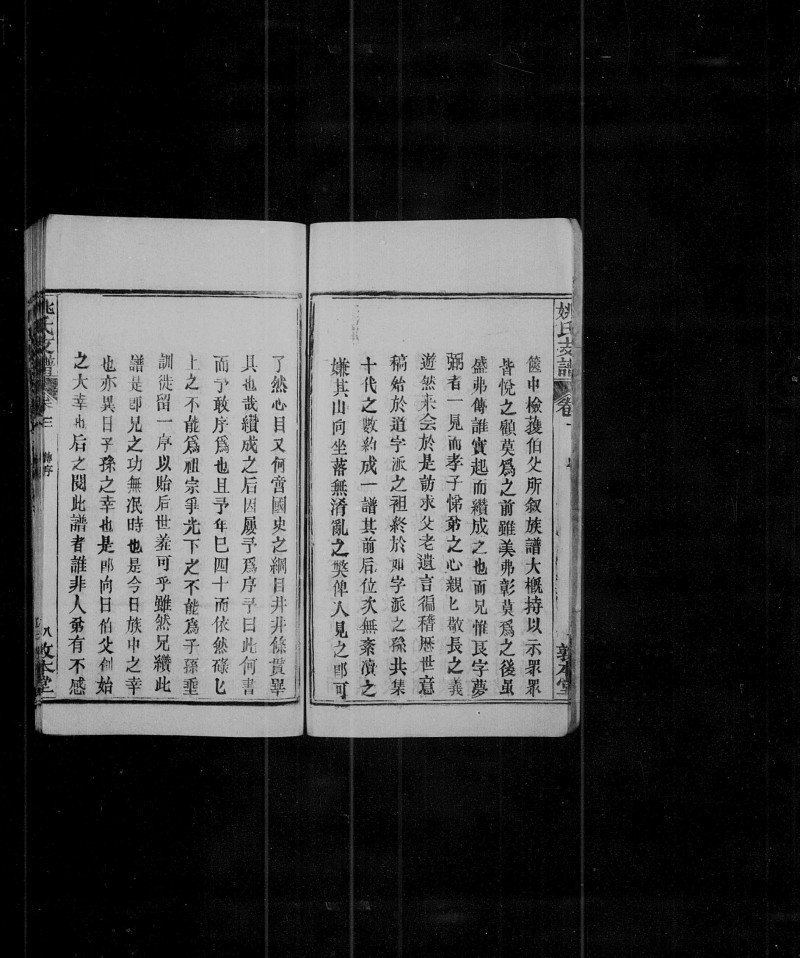 姚氏支譜
卷
敦本堂
篋中檢獲伯父所叙族譜大概持以示眾眾
皆悅之顧莫爲之前雖美弗彰莫爲之後虽
盛弗傳誰實起而纘成之也而兄惟艮字夢
弼者一見而孝子悌弟之心親匕敬長之義
遊然来会於是訪求父老遺言徧稽歷世意
稿始於道字派之祖終於如字派之孫共集
十代之數約成一譜其前后位次無紊瀆之
嫌其山向坐落無淆亂之獘俾人見之即可
了然心目又何啻國史之綱目井井條貫畢
具也哉纘成之后因屬予爲序予曰此何書
而予敢序爲也且予年巳四十而依然碌匕
上之不能爲祖宗爭光下之不能爲子孫垂
訓徒留一序以始后世羞可乎雖然兄纘此
譜是即兄之功無泯時也是今日族中之幸
也亦異日子孫之幸也是即向日伯父創始
之大幸也后之閱此譜者誰非人弟有不感
姚氏支譜
卷三
八
敦本堂